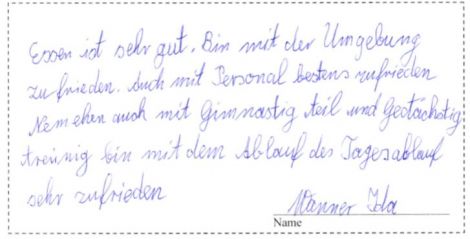 Essen ist sehr gut. Bin mit der Umgebung
zufrieden. Auch mit Personal bestens zufrieden
Nemehen auch mit Gimnastig teil und Gedächstig
treinig bin mit dem Ablauf des Tagesablauf
sehr zufrieden
Wanner Ida
Name